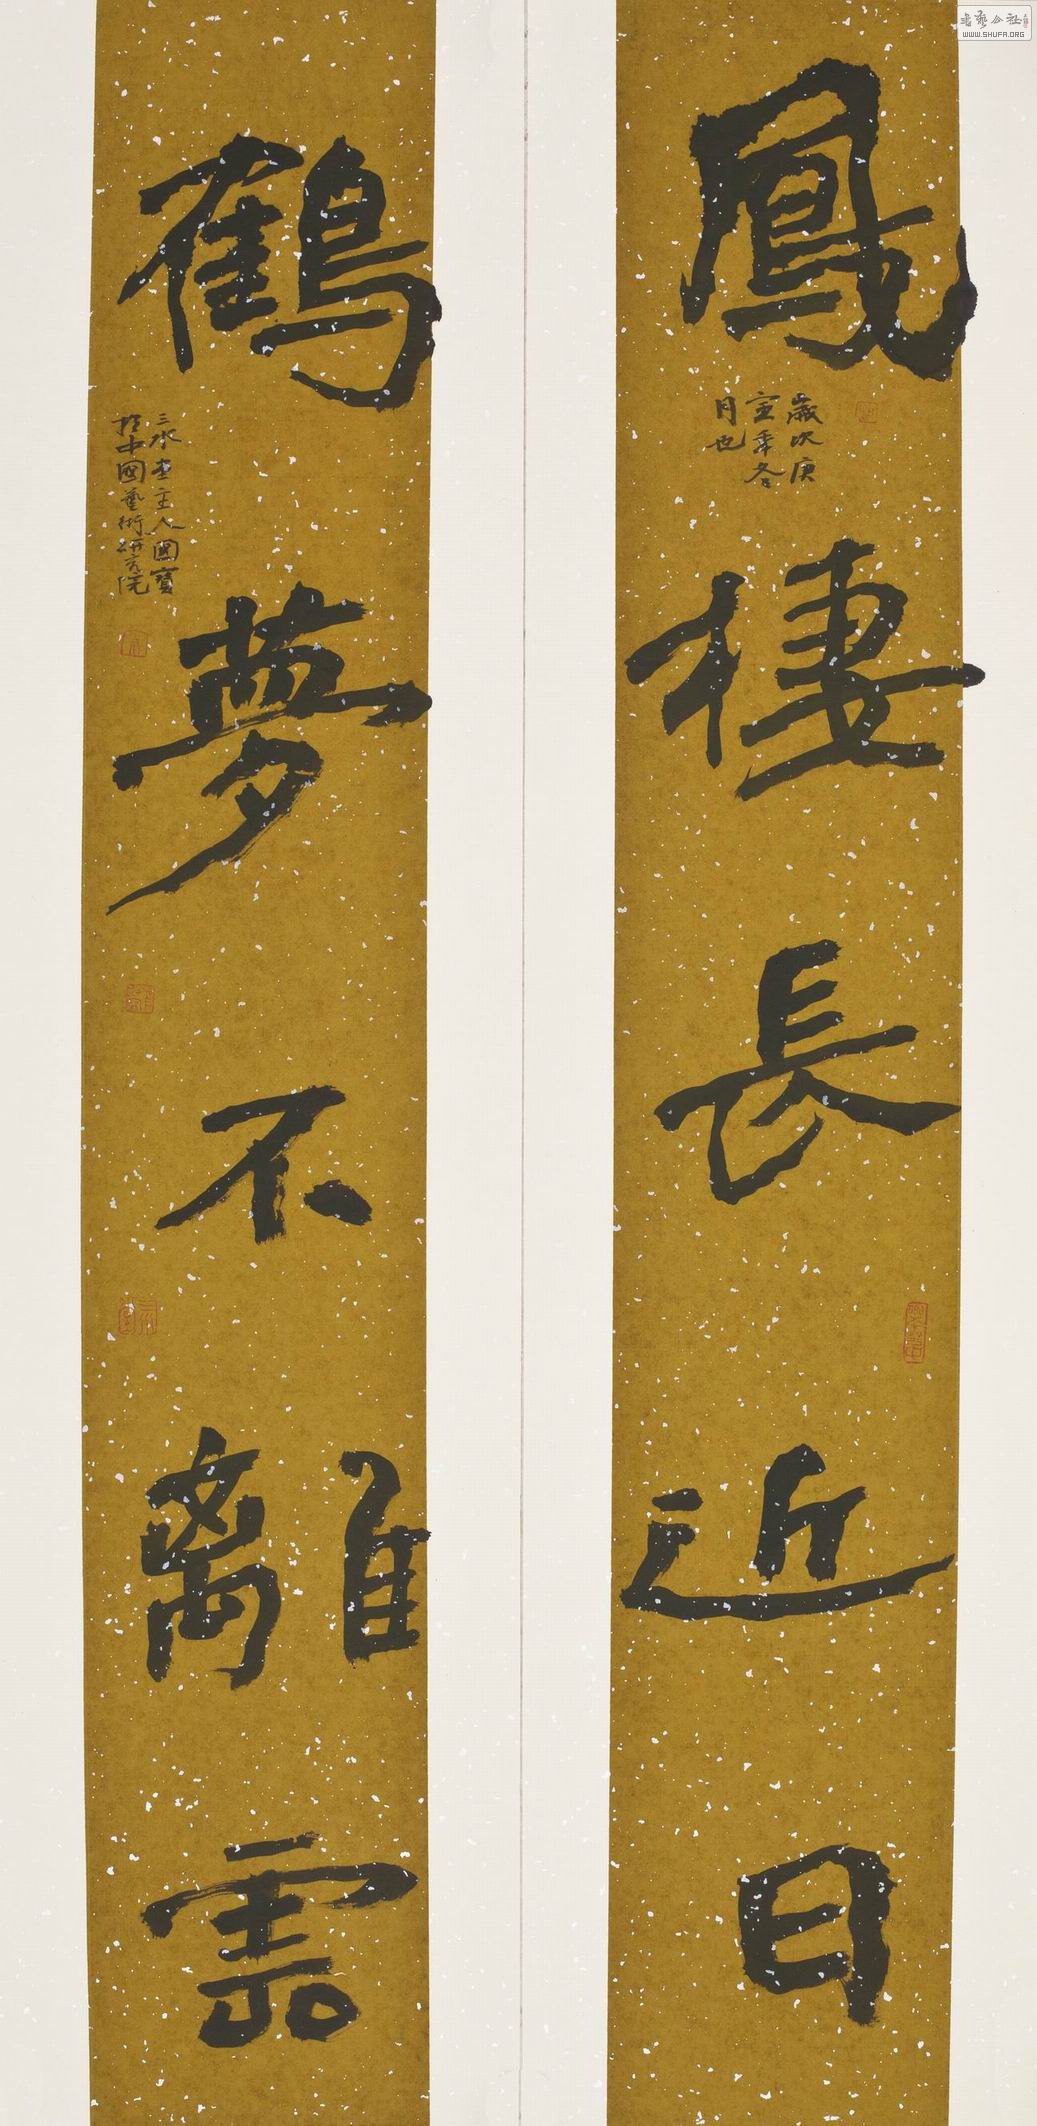 鳳棲長近日
歲次庚
寅年冬
月也
鶴夢不離雲
三水壺主人國寶
於中國藝術研究院
WWW.SHUFA.ORG